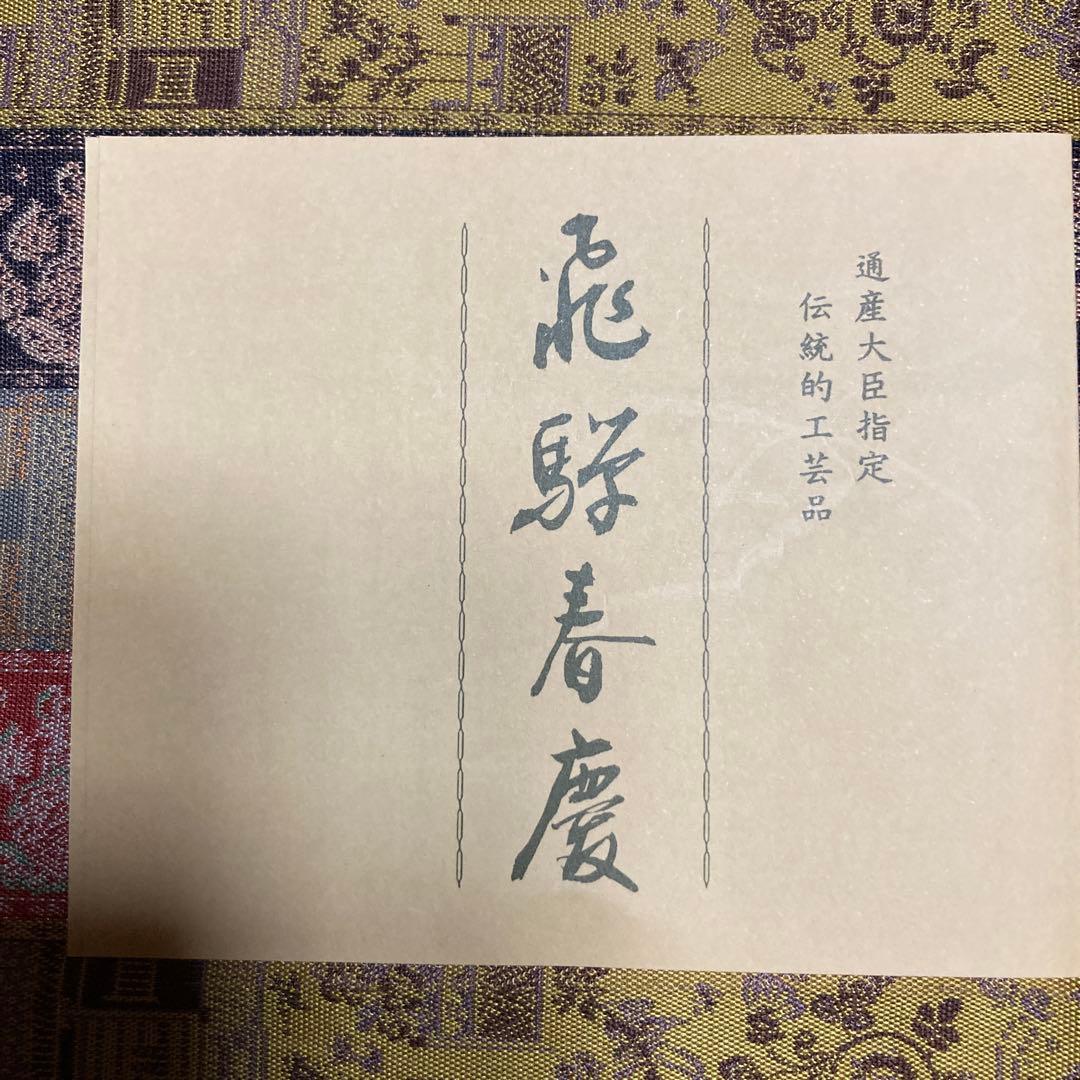 通産大臣指定
伝統的工芸品
飛騨春慶